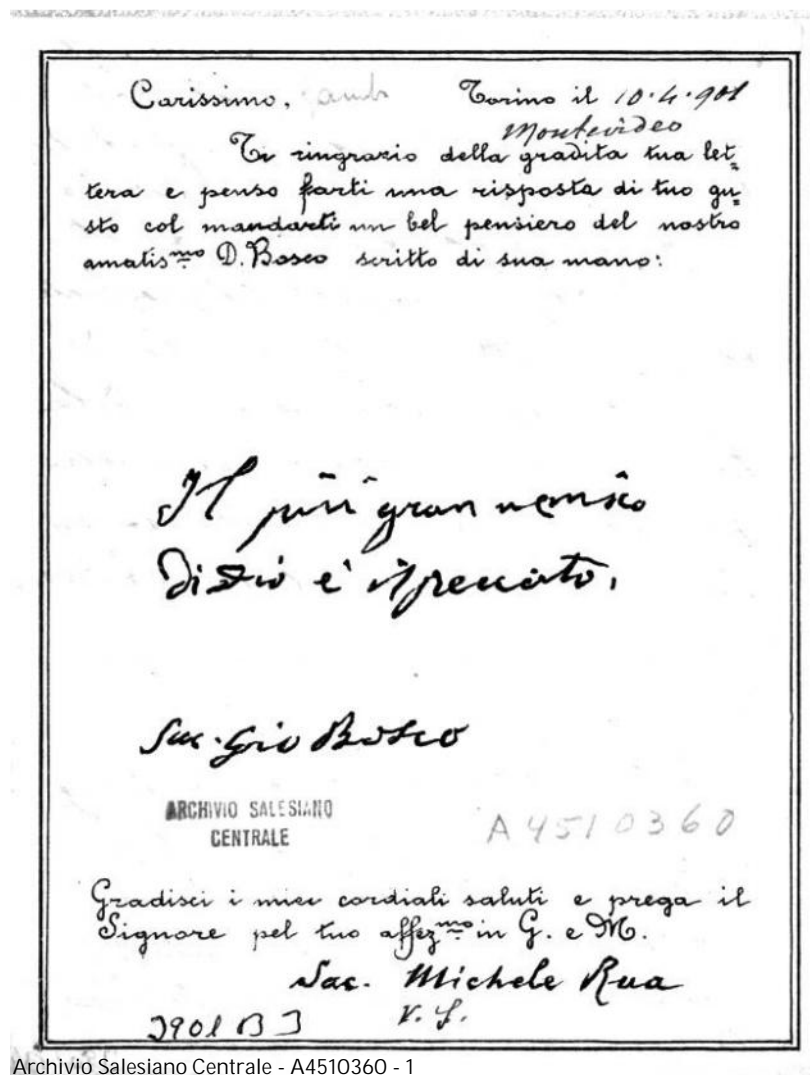 Carissimo, Torino il 10.4.901
Montevideo
Ti ringrazio della gradita tua let=
tera e penso farti una risposta di tuo gu=
sto col mandarti un bel pensiero del nostro
amatis.mo D. Bosco scritto di sua mano:
Il più gran nemico
di Dio è il peccato.
Sac. Gio Bosco
ARCHIVIO SALESIANO
CENTRALE
A4510360
Gradisci i miei cordiali saluti e prega il
Signore pel tuo affez.mo in G. e M.
Sac. Michele Rua
Archivio Salesiano Centrale - A4510360 - 1